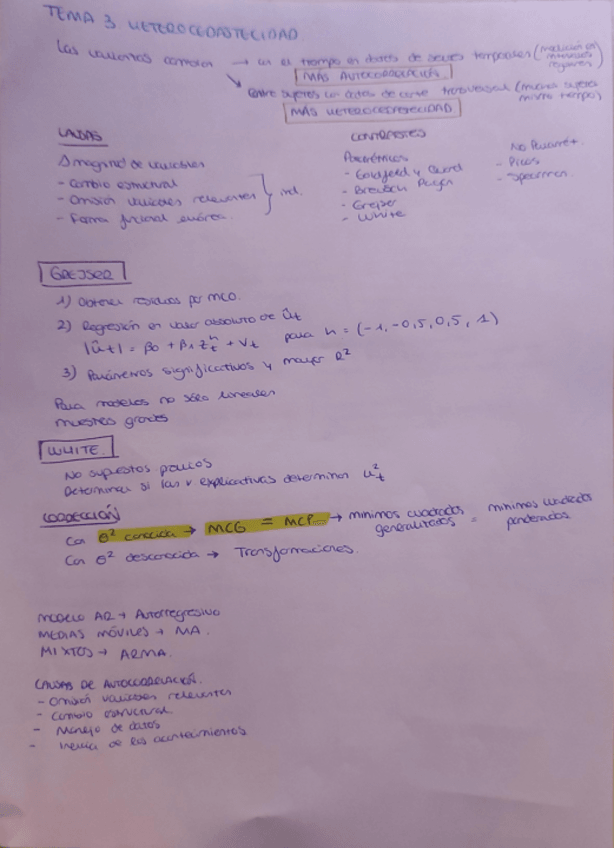 TEMA 3 HETEROCEDASTICIDAD.
Las varianzas cambian → en el tiempo en datos de series temporales (medición en intervalos regulares)
MÁS AUTOCORRELACIÓN.
↘ entre sujetos con datos de corte transversal (muchos sujetos mismo tiempo)
MÁS HETEROCEDASTICIDAD
CAUSAS
Δ magnitud de variables
- Cambio estructural
- Omisión variables relevantes } ind.
- Forma funcional errónea.
CONTRASTES
Paramétricos
- Goldfeld y Quand
- Breusch Pagan
- Glejser
- White
No Paramét.
- Picos
- Spearman.
GLEJSER
1) Obtener residuos por MCO.
2) Regresión en valor absoluto de ût
|ût| = β0 + β1 z_t^h + vt para h = (-1, -0,5, 0,5, 1)
3) Parámetros significativos y mayor R²
Para modelos no sólo lineales
muestras grandes
WHITE.
No supuestos previos
Determinar si las v explicativas determinan u²t
CORRECCIÓN
Con σ² conocida → MCG = MCP → mínimos cuadrados generalizados = mínimos cuadrados ponderados
Con σ² desconocida → Transformaciones.
MODELO AR → Autorregresivo
MEDIAS MÓVILES → MA.
MIXTOS → ARMA.
CAUSAS DE AUTOCORRELACIÓN.
- Omisión variables relevantes
- Cambio estructural
- Manejo de datos
- Inercia de los acontecimientos